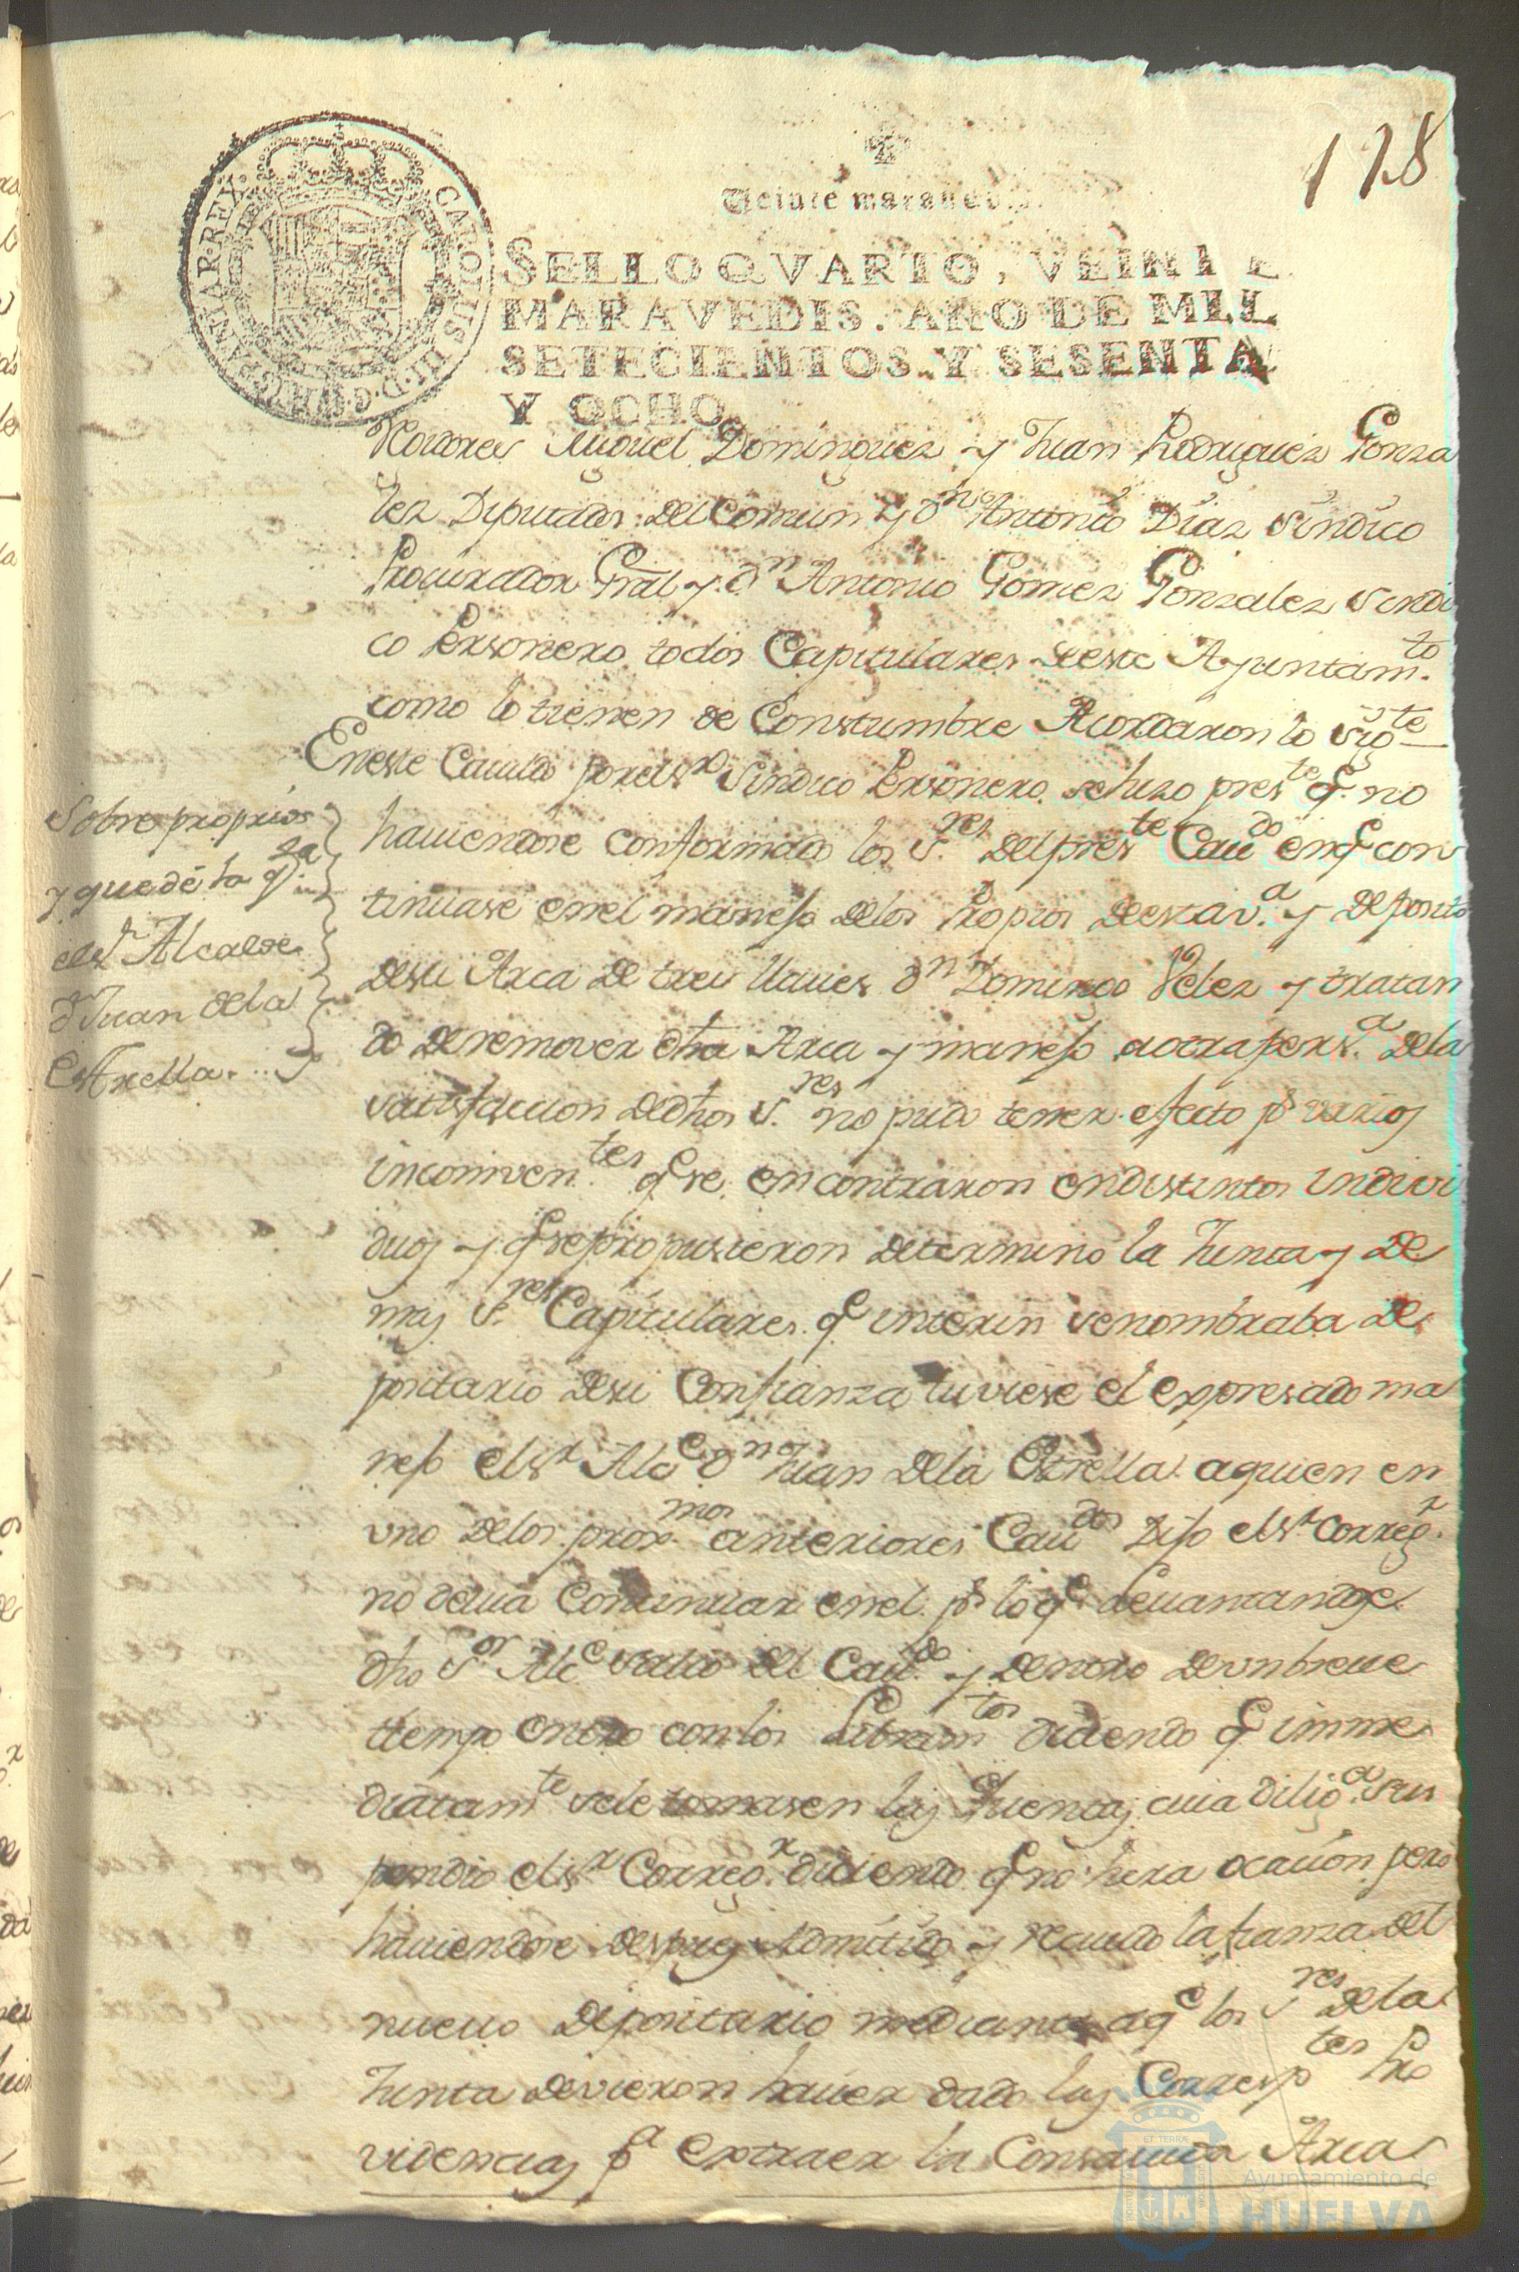 128
Veinte maravedis.
SELLO QVARTO, VEINTE
MARAVEDIS. AÑO DE MIL
SETECIENTOS Y SESENTA
Y OCHO.
CAROLUS III D G HISPANIAR REX
Rexidores Miguel Dominguez y Juan Rodriguez Gonza
lez Diputados del Comun y Dn Antonio Diaz Sindico
Procurador Gral y Dn Antonio Gomez Gonzalez Sindi
co Personero todos Capitulares deeste Ayuntamto
como lo tienen de Constumbre Acordaron lo sigte
Sobre proprios
y que dé la qta
el Sr Alcalde
Dn Juan dela
Estrella
Eneste Cauildo porelSr Sindico Personero sehizo preste qe no
hauiendose conformado los Sres delpreste Caudo enqe con
tinuase enel manejo delos Propios deestav.a y deposito
desu Arca de tres llaues Dn Domingo Velez y tratan
do deremover dha Arca y manejo aotrapersa dela
satisfaccion dedhos Sres no pudo tener efecto pr varios
inconventes qe se encontraron endistintos indivi
duos y qe sepropusieron determinó la Junta y de
mas Sres Capitulares qe interin senombraba de
positario desu Confianza tuviese el expresado ma
nejo elSr Alce Dn Juan dela Estrella aquien en
uno delos proxmos anteriores Caudos Dijo elSr Corregr
no deuia Continuar enel pr lo qe leuantandose
dho Sor Alce salio del Caudo y dentro deun breue
tiempo entro conlos Libramtos diciendo qe imme
diatamte sele tomasen las Quentas cuia diliga sus
pendio elSr Corregr diciendo qe no hera ocacion pero
hauiendose despues Admitido y reciuido lafianza del
nueuo depositario mediante aqe los Sres dela
Junta devieron hauer dado las Corresptes Pro
videncias pa extraer la Consauida Arca
Ayuntamiento de
HUELVA